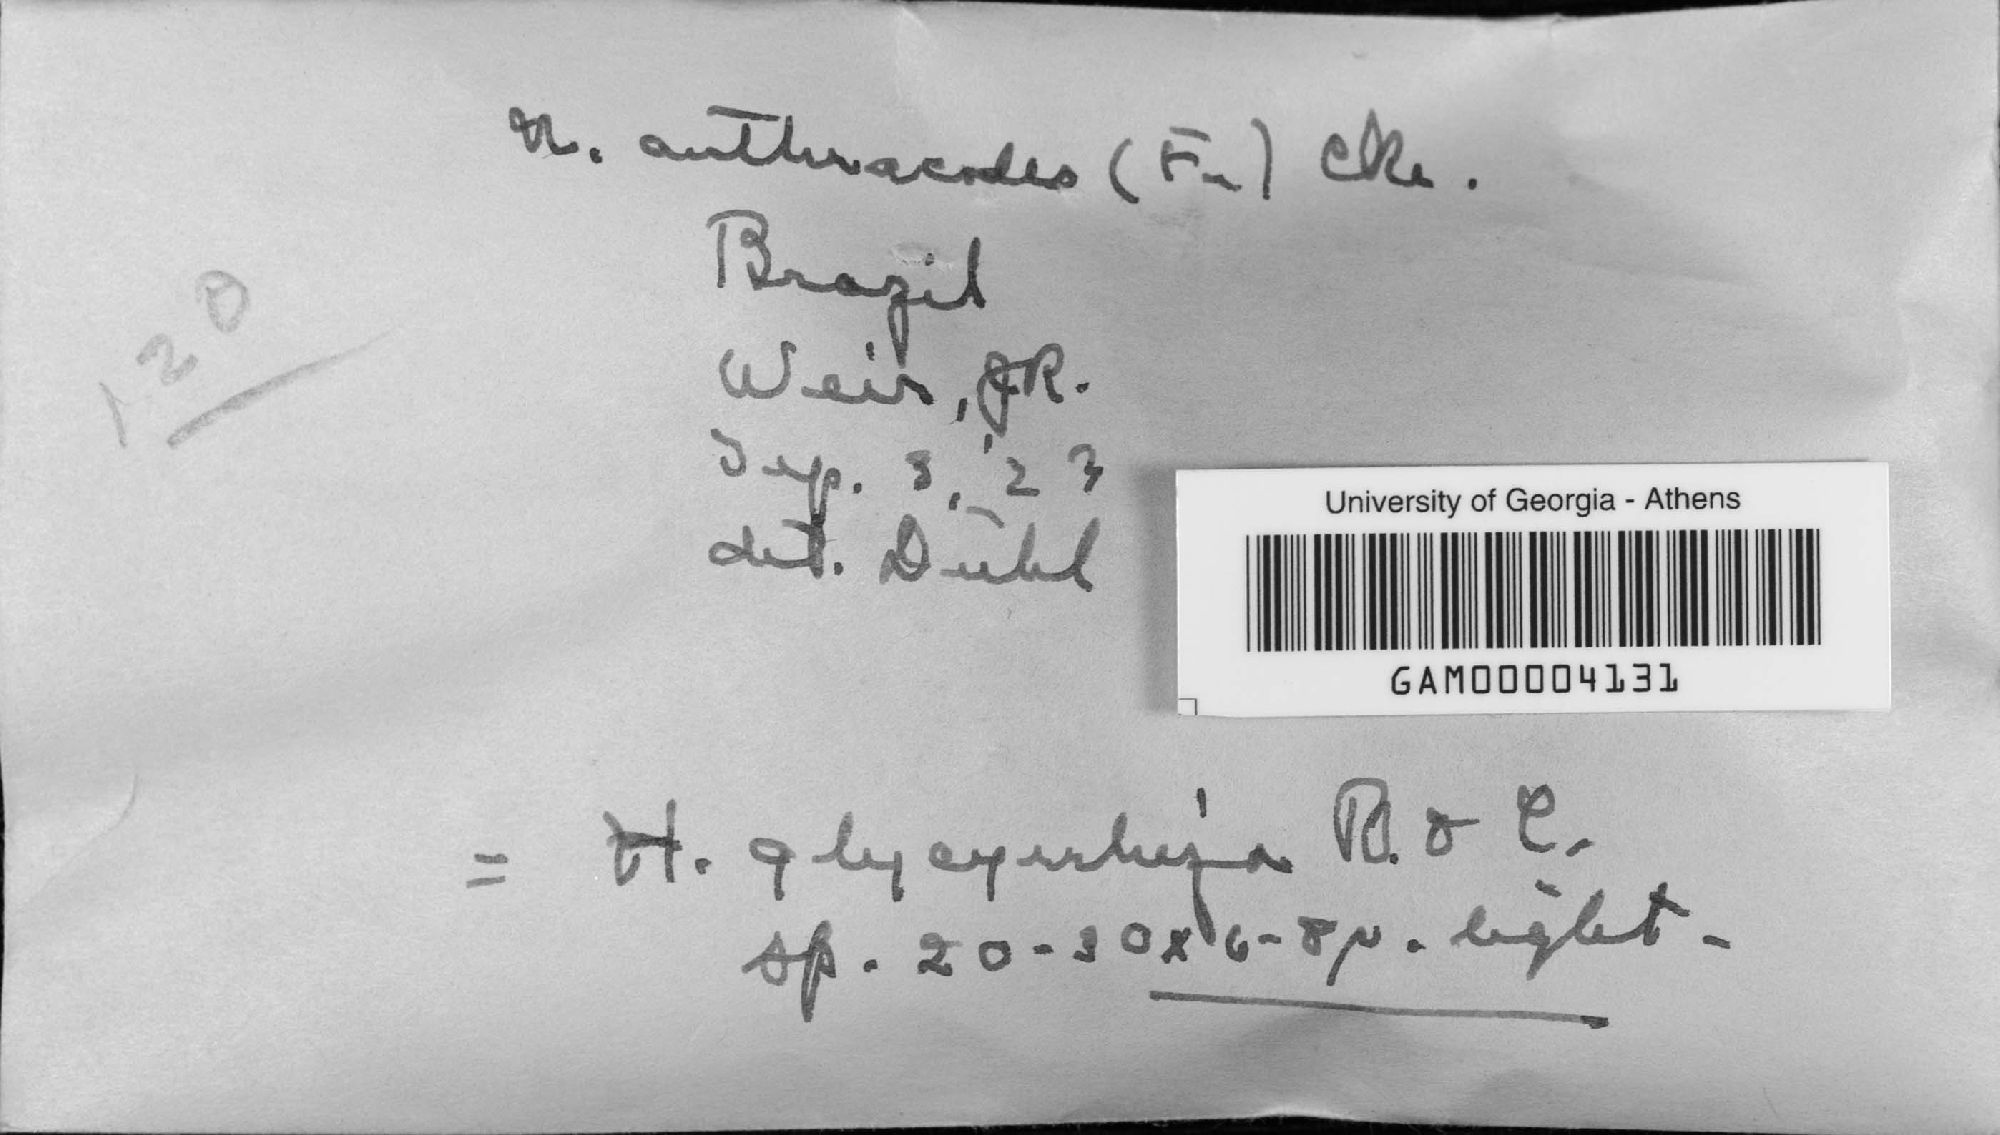 N. anthracodes (Fr) Cke.
Brazil
Weir, J.R.
Sep. 3, '23
det. Diehl
120
University of Georgia - Athens
GAM00004131
= H. glycyrrhiza B. & C.
sp. 20-30 x 6-8µ. light -